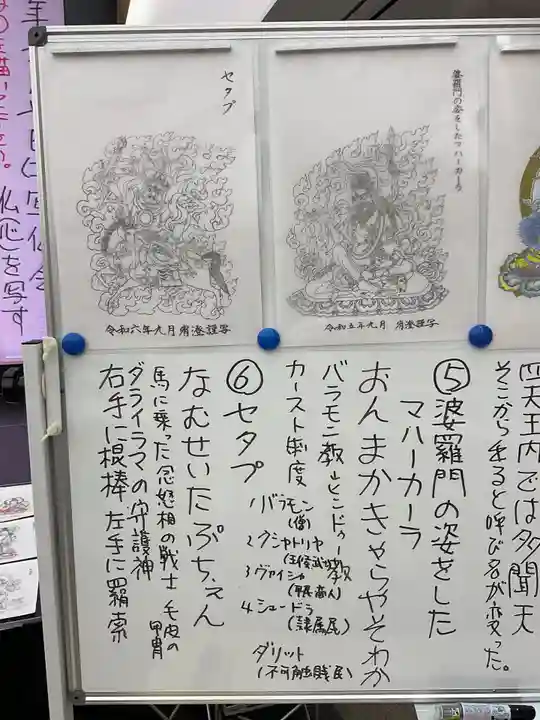 婆羅門の姿をしたマハーカーラ
令和五年九月 脊澄謹写
セタプ
令和六年九月 脊澄謹写
四天王内では多聞天
そこから出ると呼び名が変った。
⑤婆羅門の姿をした
マハーカーラ
おんまかきゃらやそわか
バラモン教→ヒンドゥー教
カースト制度
1バラモン
(僧)
2クシャトリヤ
(王候武士)
3ヴァイシャ
(平民商人)
4シュードラ
(隷属民)
ダリット
(不可触賎民)
⑥セタプ
なむせいたぷちぇん
馬に乗った忿怒相の戦士 毛皮の
甲冑
ダライラマの守護神
右手に棍棒 左手に羂索
仏(心)を写す